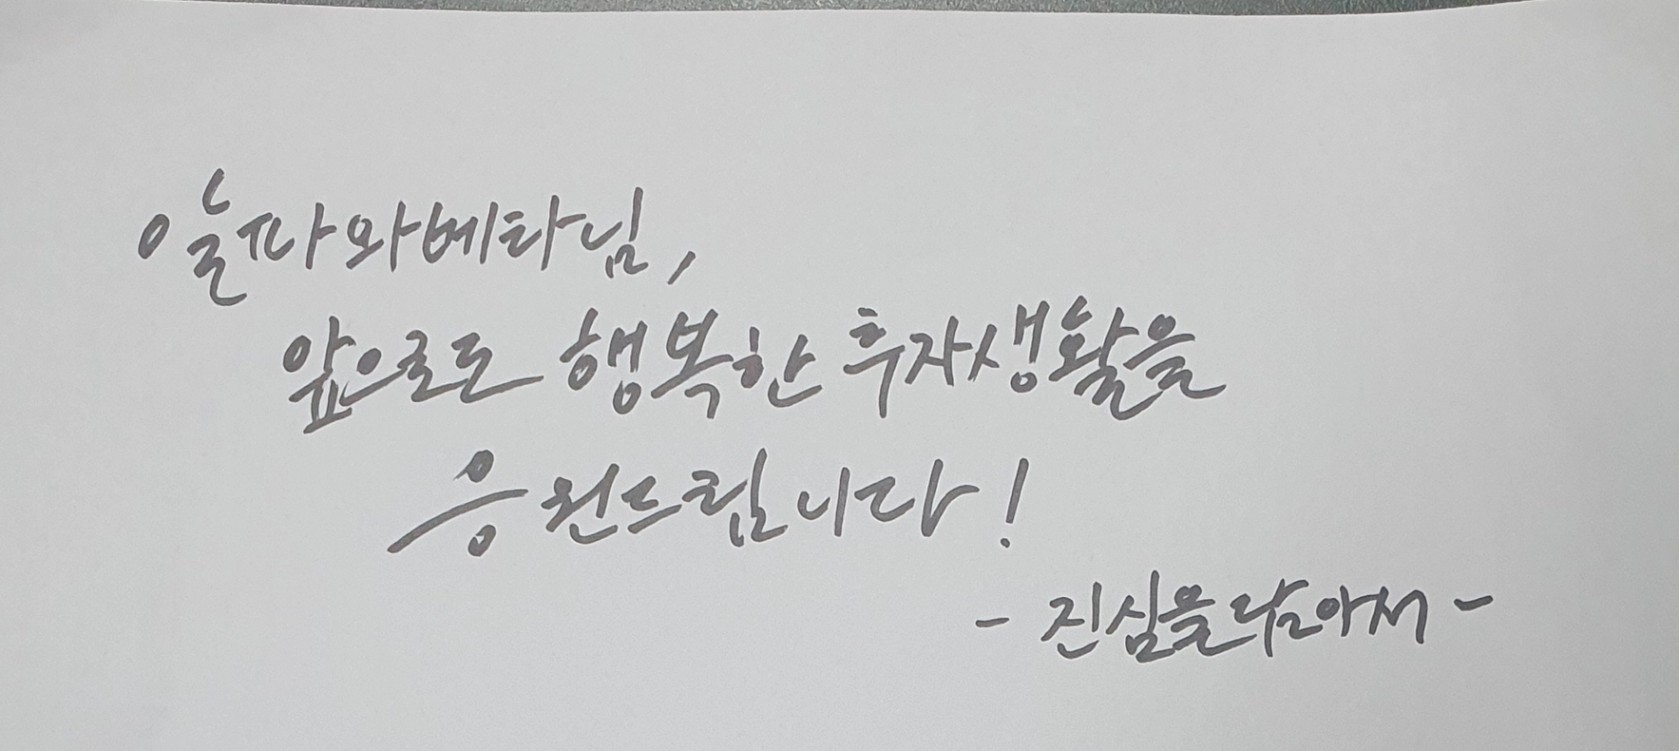 알파와베타님,
앞으로도 행복한 투자생활을
응원드립니다!
- 진심을담아서 -